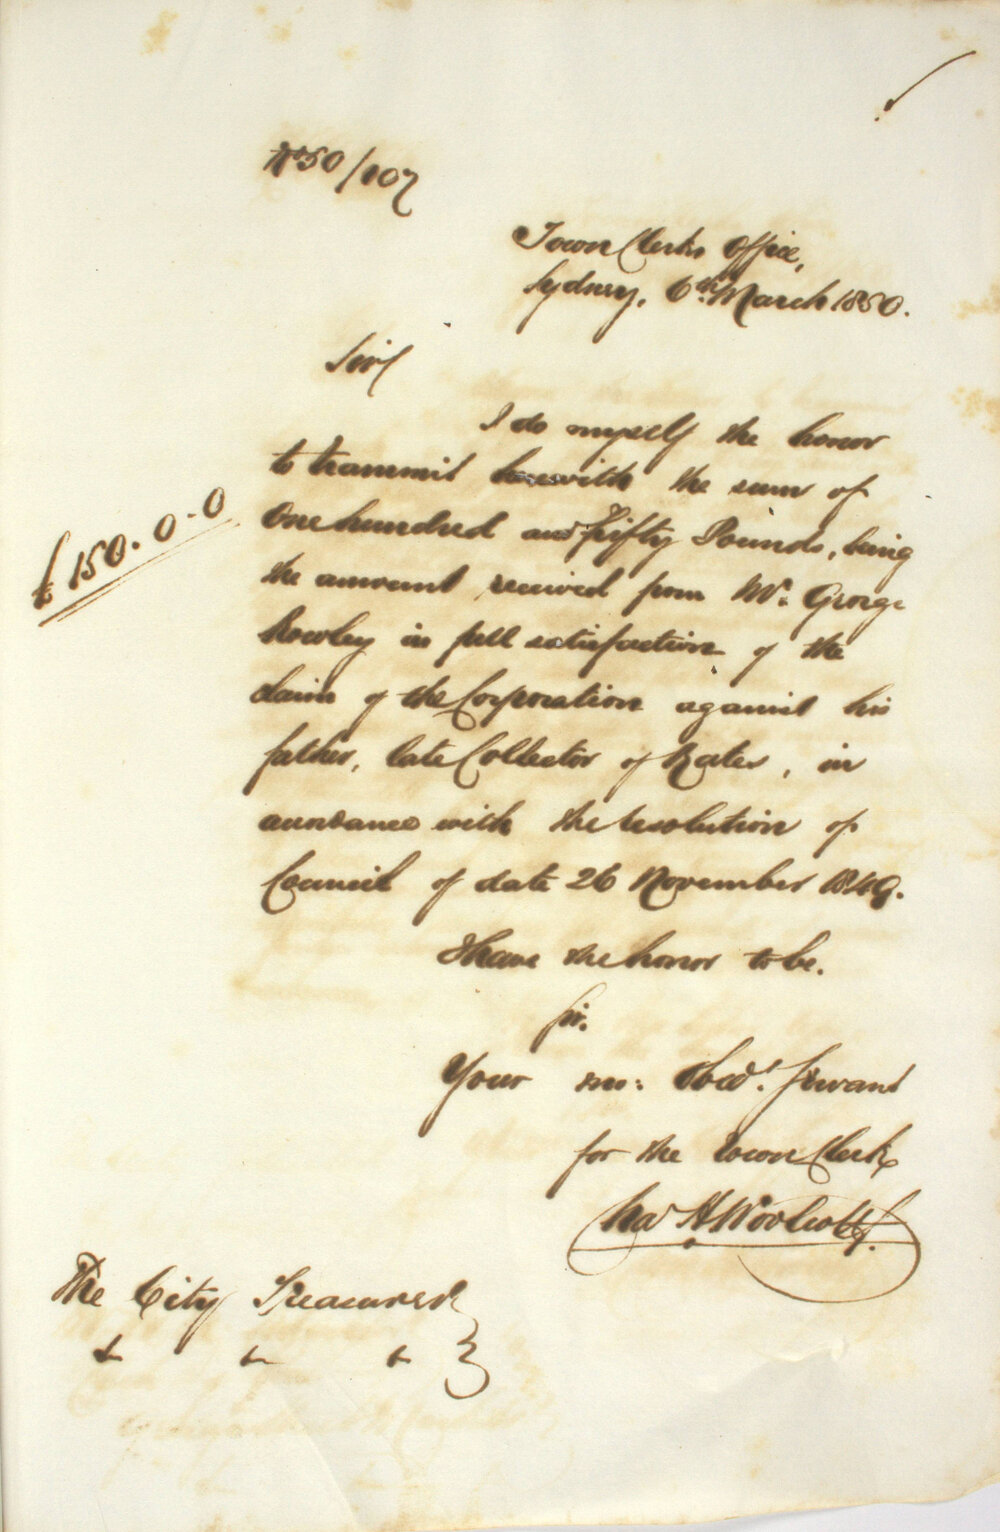 No 50/107
Town Clerks Office,
Sydney, 6th. March 1850.
Sir
I do myself the honor
to transmit herewith the sum of
£150.0.0
One hundred and fifty Pounds, being
the amount received from Mr. George
Rowley in full satisfaction of the
claim of the Corporation against his
father, late Collector of Rates, in
accordance with the resolution of
Council of date 26 November 1849.
I have the honor to be.
Sir.
Your mo: Obedt. Servant
for the Town Clerk
Chas H Woolcott.
The City Treasurer